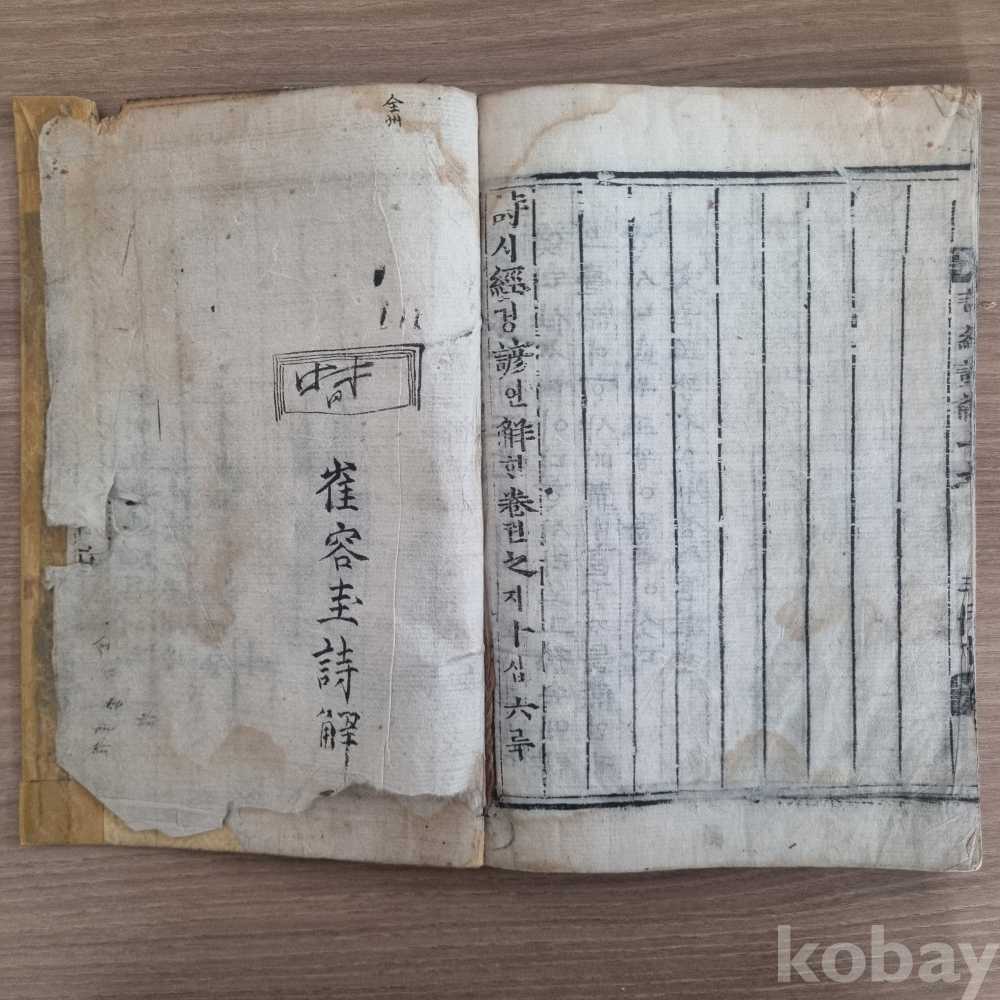 全州
時
崔容圭詩解
詩시經경諺언解ᄒᆡ卷권之지十십六류
詩經諺解 十六
kobay